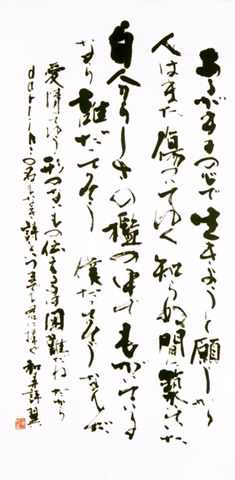 あるがままの心で生きようと願うから
人はまた傷ついてゆく 知らぬ間に築いていた
自分らしさの檻の中で もがいている
なら 誰だってそう 僕だってそうなんだ
愛情ってゆう形のないもの伝えるのは 困難だねだから
darlinこの名もなき詩をいつまでも君に捧ぐ